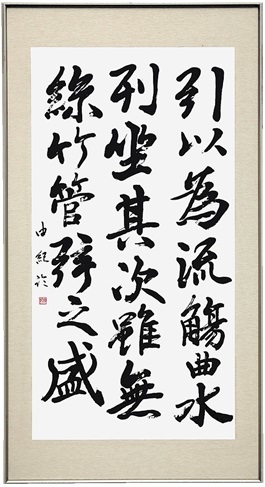 引以為流觴曲水
列坐其次雖無
絲竹管弦之盛
由紀